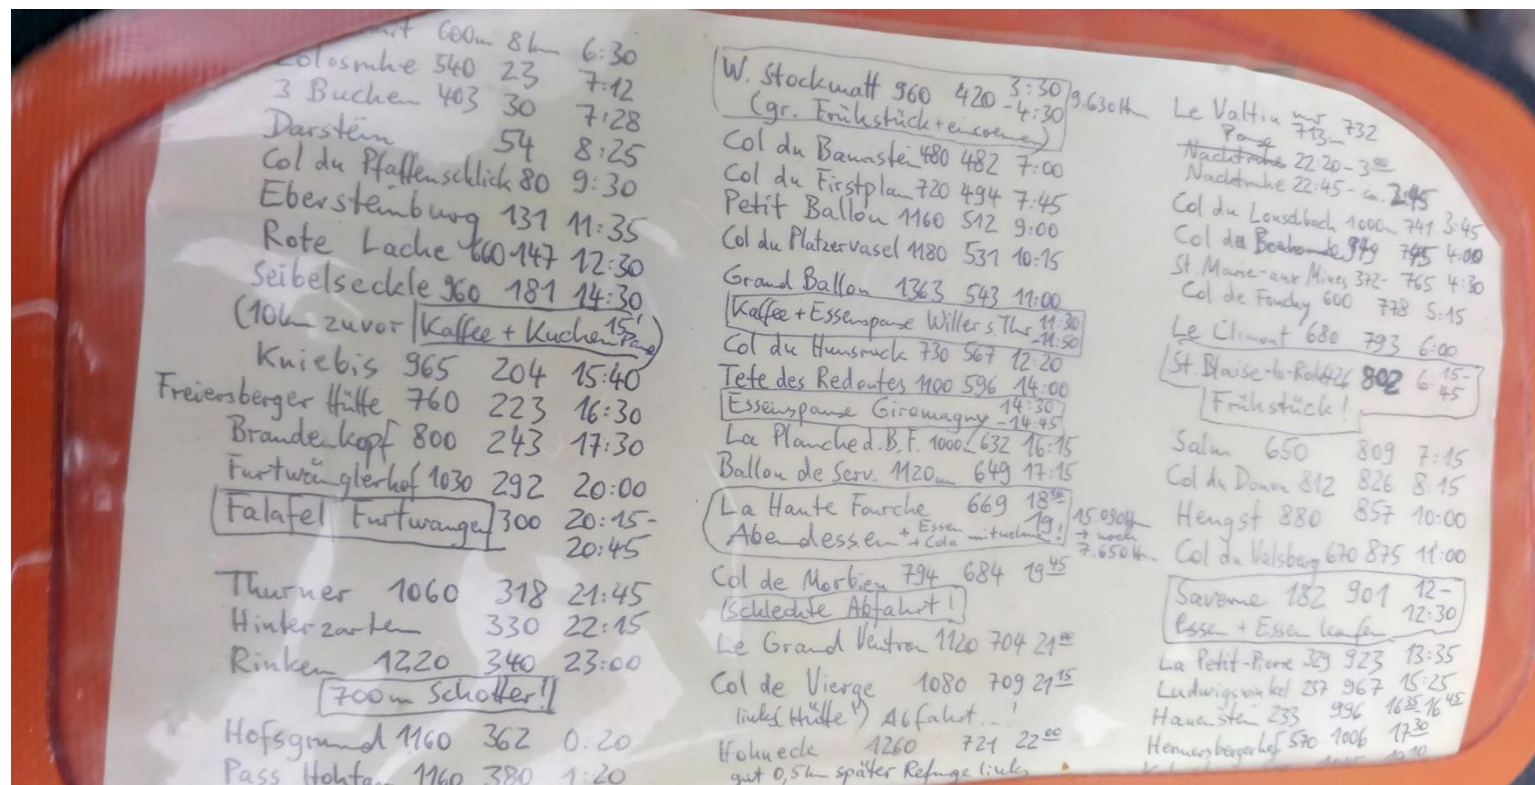 600m 8km 6:30
Colosruhe 540 23 7:12
3 Buchen 403 30 7:28
Darstein 54 8:25
Col du Pfaffenschlick 80 9:30
Ebersteinburg 131 11:35
Rote Lache 660 147 12:30
Seibelseckle 960 181 14:30
(10km zuvor Kaffee + Kuchen 15'
Kniebis 965 204 15:40
Freiersberger Hütte 760 223 16:30
Brandenkopf 800 243 17:30
Furtwänglerhof 1030 292 20:00
Falafel Furtwangen 300 20:15-
20:45
Thurner 1060 318 21:45
Hinterzarten 330 22:15
Rinken 1220 340 23:00
700m Schotter!
Hofsgrund 1160 362 0:20
Pass 1160 380 1:20
W. Stockmatt 960 420 3:30 9.630Hm
-4:30
(gr. Frühstück + eincremen)
Col du Bannstein 480 482 7:00
Col du Firstplan 720 494 7:45
Petit Ballon 1160 512 9:00
Col du Platzerwasel 1180 531 10:15
Grand Ballon 1363 543 11:00
Kaffee + Essenspause Willer s. Thur 11:30
-11:50
Col du Hunsruck 730 567 12:20
Tete des Redoutes 1100 596 14:00
Essenspause Giromagny 14:30
-14:45
La Planche d. B. F. 1000 632 16:15
Ballon de Serv. 1120m 649 17:15
La Haute Fourche 669 18
Abendessen + Essen + Cola mitnehmen! 19
15.090Hm
→ noch
7.650Hm
Col de Morbieu 794 684 19 45
(schlechte Abfahrt!)
Le Grand Ventron 1120 704 21 00
Col de Vierge 1080 709 21 15
links (Hütte!) Abfahrt...!
Hohneck 1260 721 22 00
gut 0,5km später Refuge links
Le Valtin 732
713m
Nachtruhe 22:20-3 00
Nachtruhe 22:45- ca. 2:45
Col du Louschbach 1000m 741 3:45
Col du Bonhomme 949 745 4:00
St. Marie-aux-Mines 372 765 4:30
Col de Fouchy 600 778 5:15
Le Climont 680 793 6:00
St. Blaise-la-Roche 426 802 6 15-
45
Frühstück!
Salm 650 809 7:15
Col du Donon 812 826 8:15
Hengst 880 857 10:00
Col du Valsberg 670 875 11:00
Saverne 182 901 12-
12:30
Essen + Essen kaufen
La Petit-Pierre 329 923 13:35
Ludwigswinkel 237 967 15:25
Hauenstein 233 996 16 35-16 45
Hermersbergerhof 570 1006 17 30